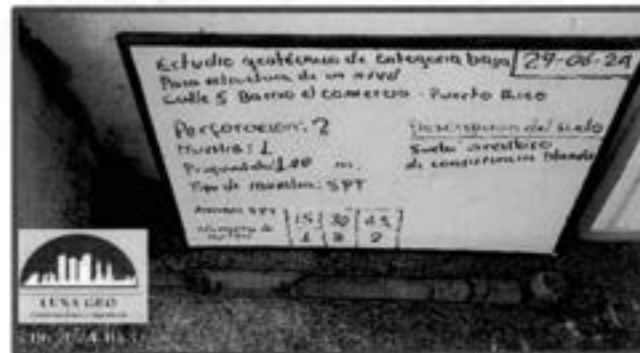 Estudio geotécnico de categoria baja
29-06-24
Para estructura de un nivel
Calle 5 Barrio el comercio - Puerto Rico
Perforación: 2
Muestra: 1
Profundidad: 1.00 m.
Tipo de muestra: SPT
Descripcion del suelo
Suelo arcilloso
de consistencia blanda
SPT 15 30 45
Número de
LUNA GEO